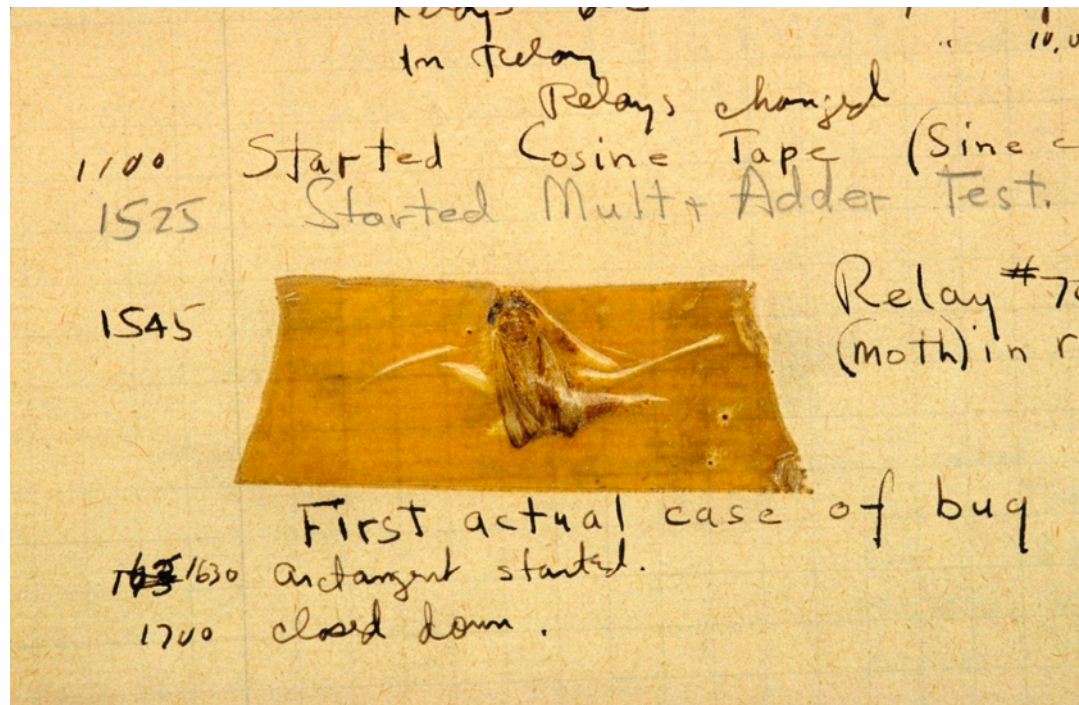 Relays
in relay
10,0
Relays changed
1100 Started Cosine Tape (Sine c
1525 Started Mult+ Adder Test.
1545 Relay #70
(moth) in r
First actual case of bug
1630 arctangent started.
1700 closed down.